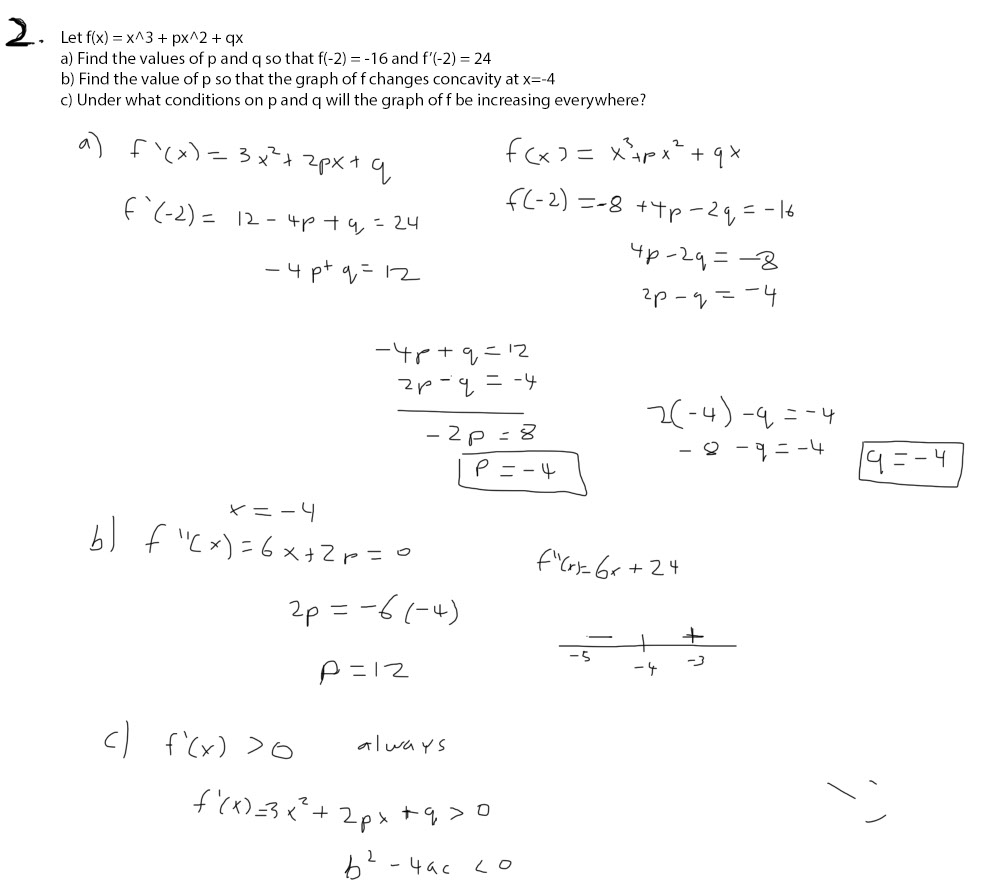 2. Let f(x) = x^3 + px^2 + qx
a) Find the values of p and q so that f(-2) = -16 and f'(-2) = 24
b) Find the value of p so that the graph of f changes concavity at x=-4
c) Under what conditions on p and q will the graph of f be increasing everywhere?
a) f'(x) = 3x² + 2px + q
f'(-2) = 12 - 4p + q = 24
-4p + q = 12
f(x) = x³ + px² + qx
f(-2) = -8 + 4p - 2q = -16
4p - 2q = -8
2p - q = -4
-4p + q = 12
2p - q = -4
-2p = 8
P = -4
2(-4) - q = -4
-8 - q = -4
q = -4
x = -4
b) f''(x) = 6x + 2p = 0
2p = -6(-4)
P = 12
f''(x) = 6x + 24
- +
-5 -4 -3
c) f'(x) > 0 always
f'(x) = 3x² + 2px + q > 0
b² - 4ac < 0